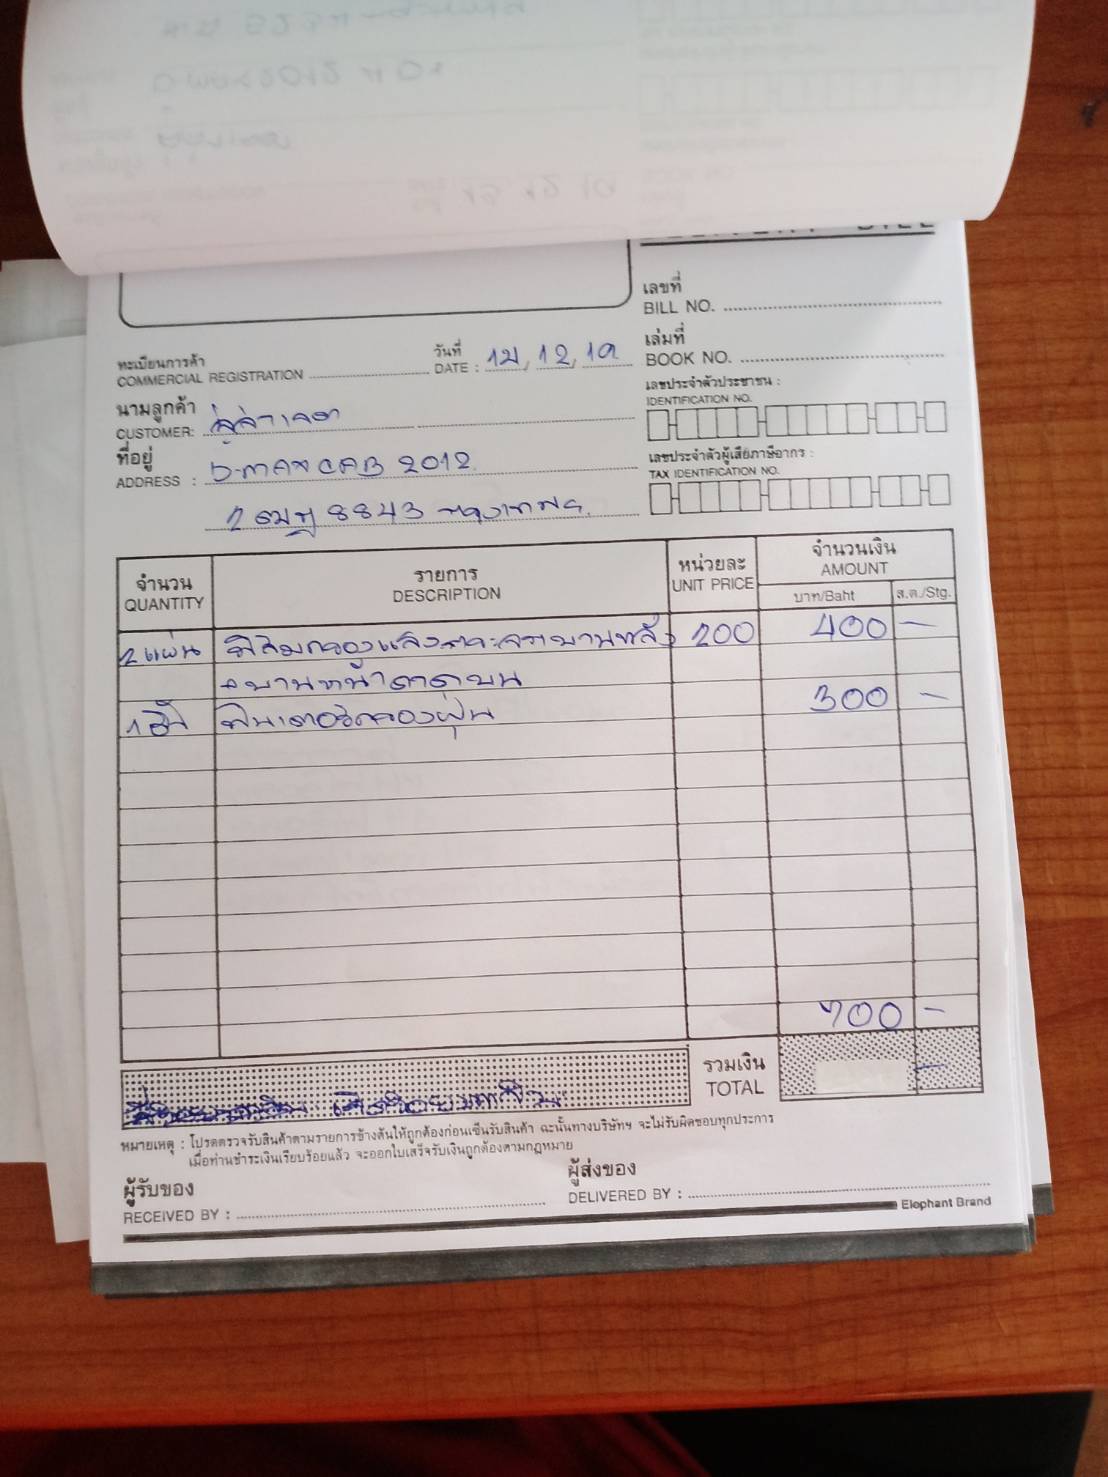 DELIVERY BILL
เลขที่
BILL NO.
ทะเบียนการค้า
COMMERCIAL REGISTRATION
วันที่
DATE : 12, 19
เล่มที่
BOOK NO.
นามลูกค้า
CUSTOMER:
เลขประจำตัวประชาชน :
IDENTIFICATION NO.
ที่อยู่
ADDRESS : D-MAX CAB 2012
เลขประจำตัวผู้เสียภาษีอากร :
TAX IDENTIFICATION NO.
8843 กรุงเทพฯ
จำนวน
QUANTITY
รายการ
DESCRIPTION
หน่วยละ
UNIT PRICE
จำนวนเงิน
AMOUNT
บาท/Baht
ส.ต./Stg.
2 แผ่น ฟิล์มกรองแสง บานหลัง 200 400 -
+ บานหน้าคาดบน
1 ชิ้น ฟิลเตอร์กรองฝุ่น 300 -
700 -
รวมเงิน
TOTAL
หมายเหตุ : โปรดตรวจรับสินค้าตามรายการข้างต้นให้ถูกต้องก่อนเซ็นรับสินค้า ฉะนั้นทางบริษัทฯ จะไม่รับผิดชอบทุกประการ
เมื่อท่านชำระเงินเรียบร้อยแล้ว จะออกใบเสร็จรับเงินถูกต้องตามกฎหมาย
ผู้รับของ
RECEIVED BY :
ผู้ส่งของ
DELIVERED BY :
Elephant Brand